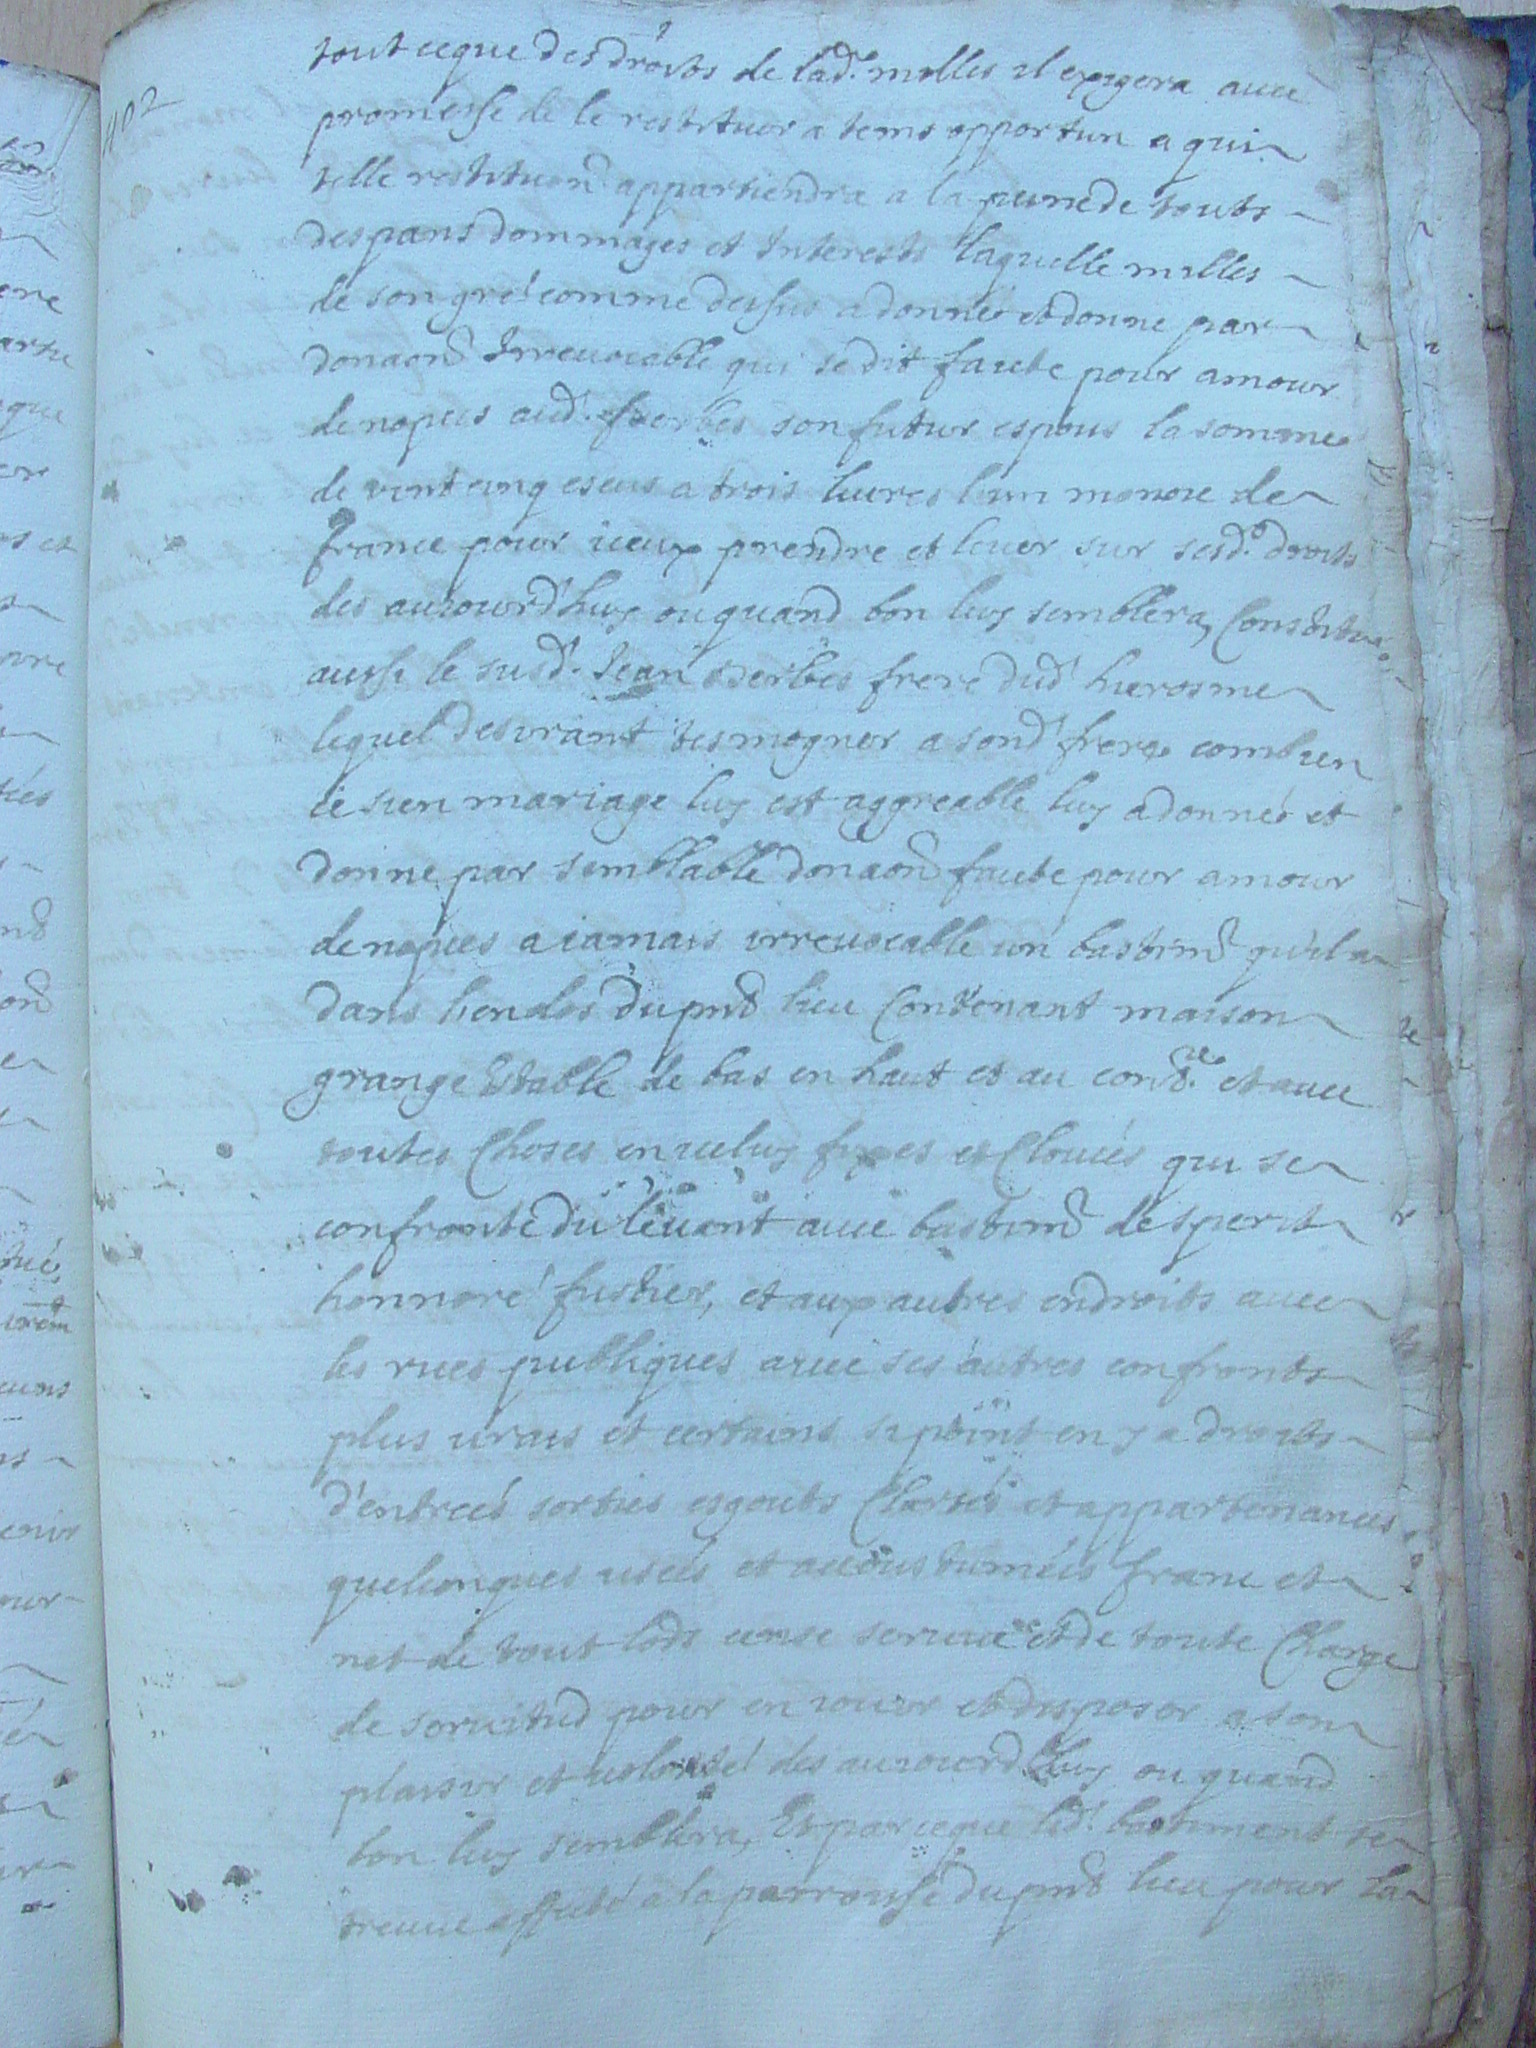 402
tout ce que des droits de lad.e milles il exigera avec
promesse de le restituer a tems opportun a qui
telle restituon appartiendra a la peine de touts
despans dommages et Interests laquelle milles
de son gré comme dessus a donné et donne par
donaon Irrevocable qui se dit faicte pour amour
de nopces aud. son futur espous la somme
de vint cinq escus a trois livres l'un monoie de
france pour iceux prendre et lever sur sesd. droits
des aujourd'huy ou quand bon luy semblera, Constitué
aussi le susd. Jean frere dud hierosme
lequel desirant tesmogner a sond frere combien
ce sien mariage luy est aggreable luy a donné et
donne par semblable donaon faicte pour amour
de nopces a iamais irrevocable un bastimt qu'il a
dans l'enclos du pnt lieu Contenant maison
grange Estable de bas en haut et au cont.re et avec
toutes Choses en icelluy fixes et Cloués qui se
confronte du levant avec bastimt de sperit
honnoré fustier, et aux autres endroits avec
les rues publiques avec ses autres confronts
plus vrais et certains si point en y a droits
d'entreés sorties esgouts Clartés et appartenances
quelconques usées et accoustumées franc et
net de tout lods cense service et de toute Charge
de servitud pour en iouir et disposer a son
plaisir et volonté des aujourd'huy ou quand
bon luy semblera, Et parceque led. bastiment se
treuve affecté a la parroisse du pnt lieu pour la